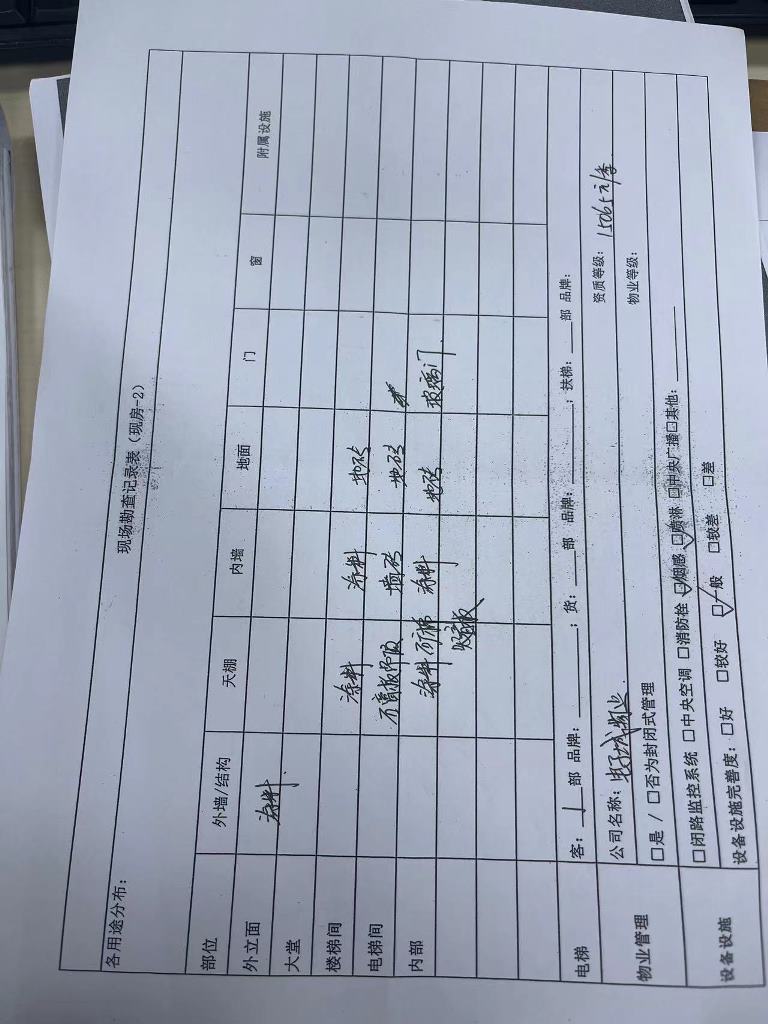 现场勘查记录表（现房-2）
各用途分布：
部位 外墙/结构 天棚 内墙 地面 门 窗 附属设施
外立面 涂料
大堂
楼梯间 涂料 涂料 地砖
电梯间 石膏板吊顶 墙砖 地砖
内部 涂料 矿棉 涂料 地砖 玻璃门
板
电梯 客：1部 品牌：____；货：____部 品牌：____；扶梯：____部 品牌：
物业管理 公司名称：电子城物业 资质等级：
□是 / □否为封闭式管理 物业等级：
设备设施 □闭路监控系统 □中央空调 □消防栓 ☑烟感 ☑喷淋 □中央广播 □其他：____
设备设施完善度：□好 □较好 ☑一般 □较差 □差